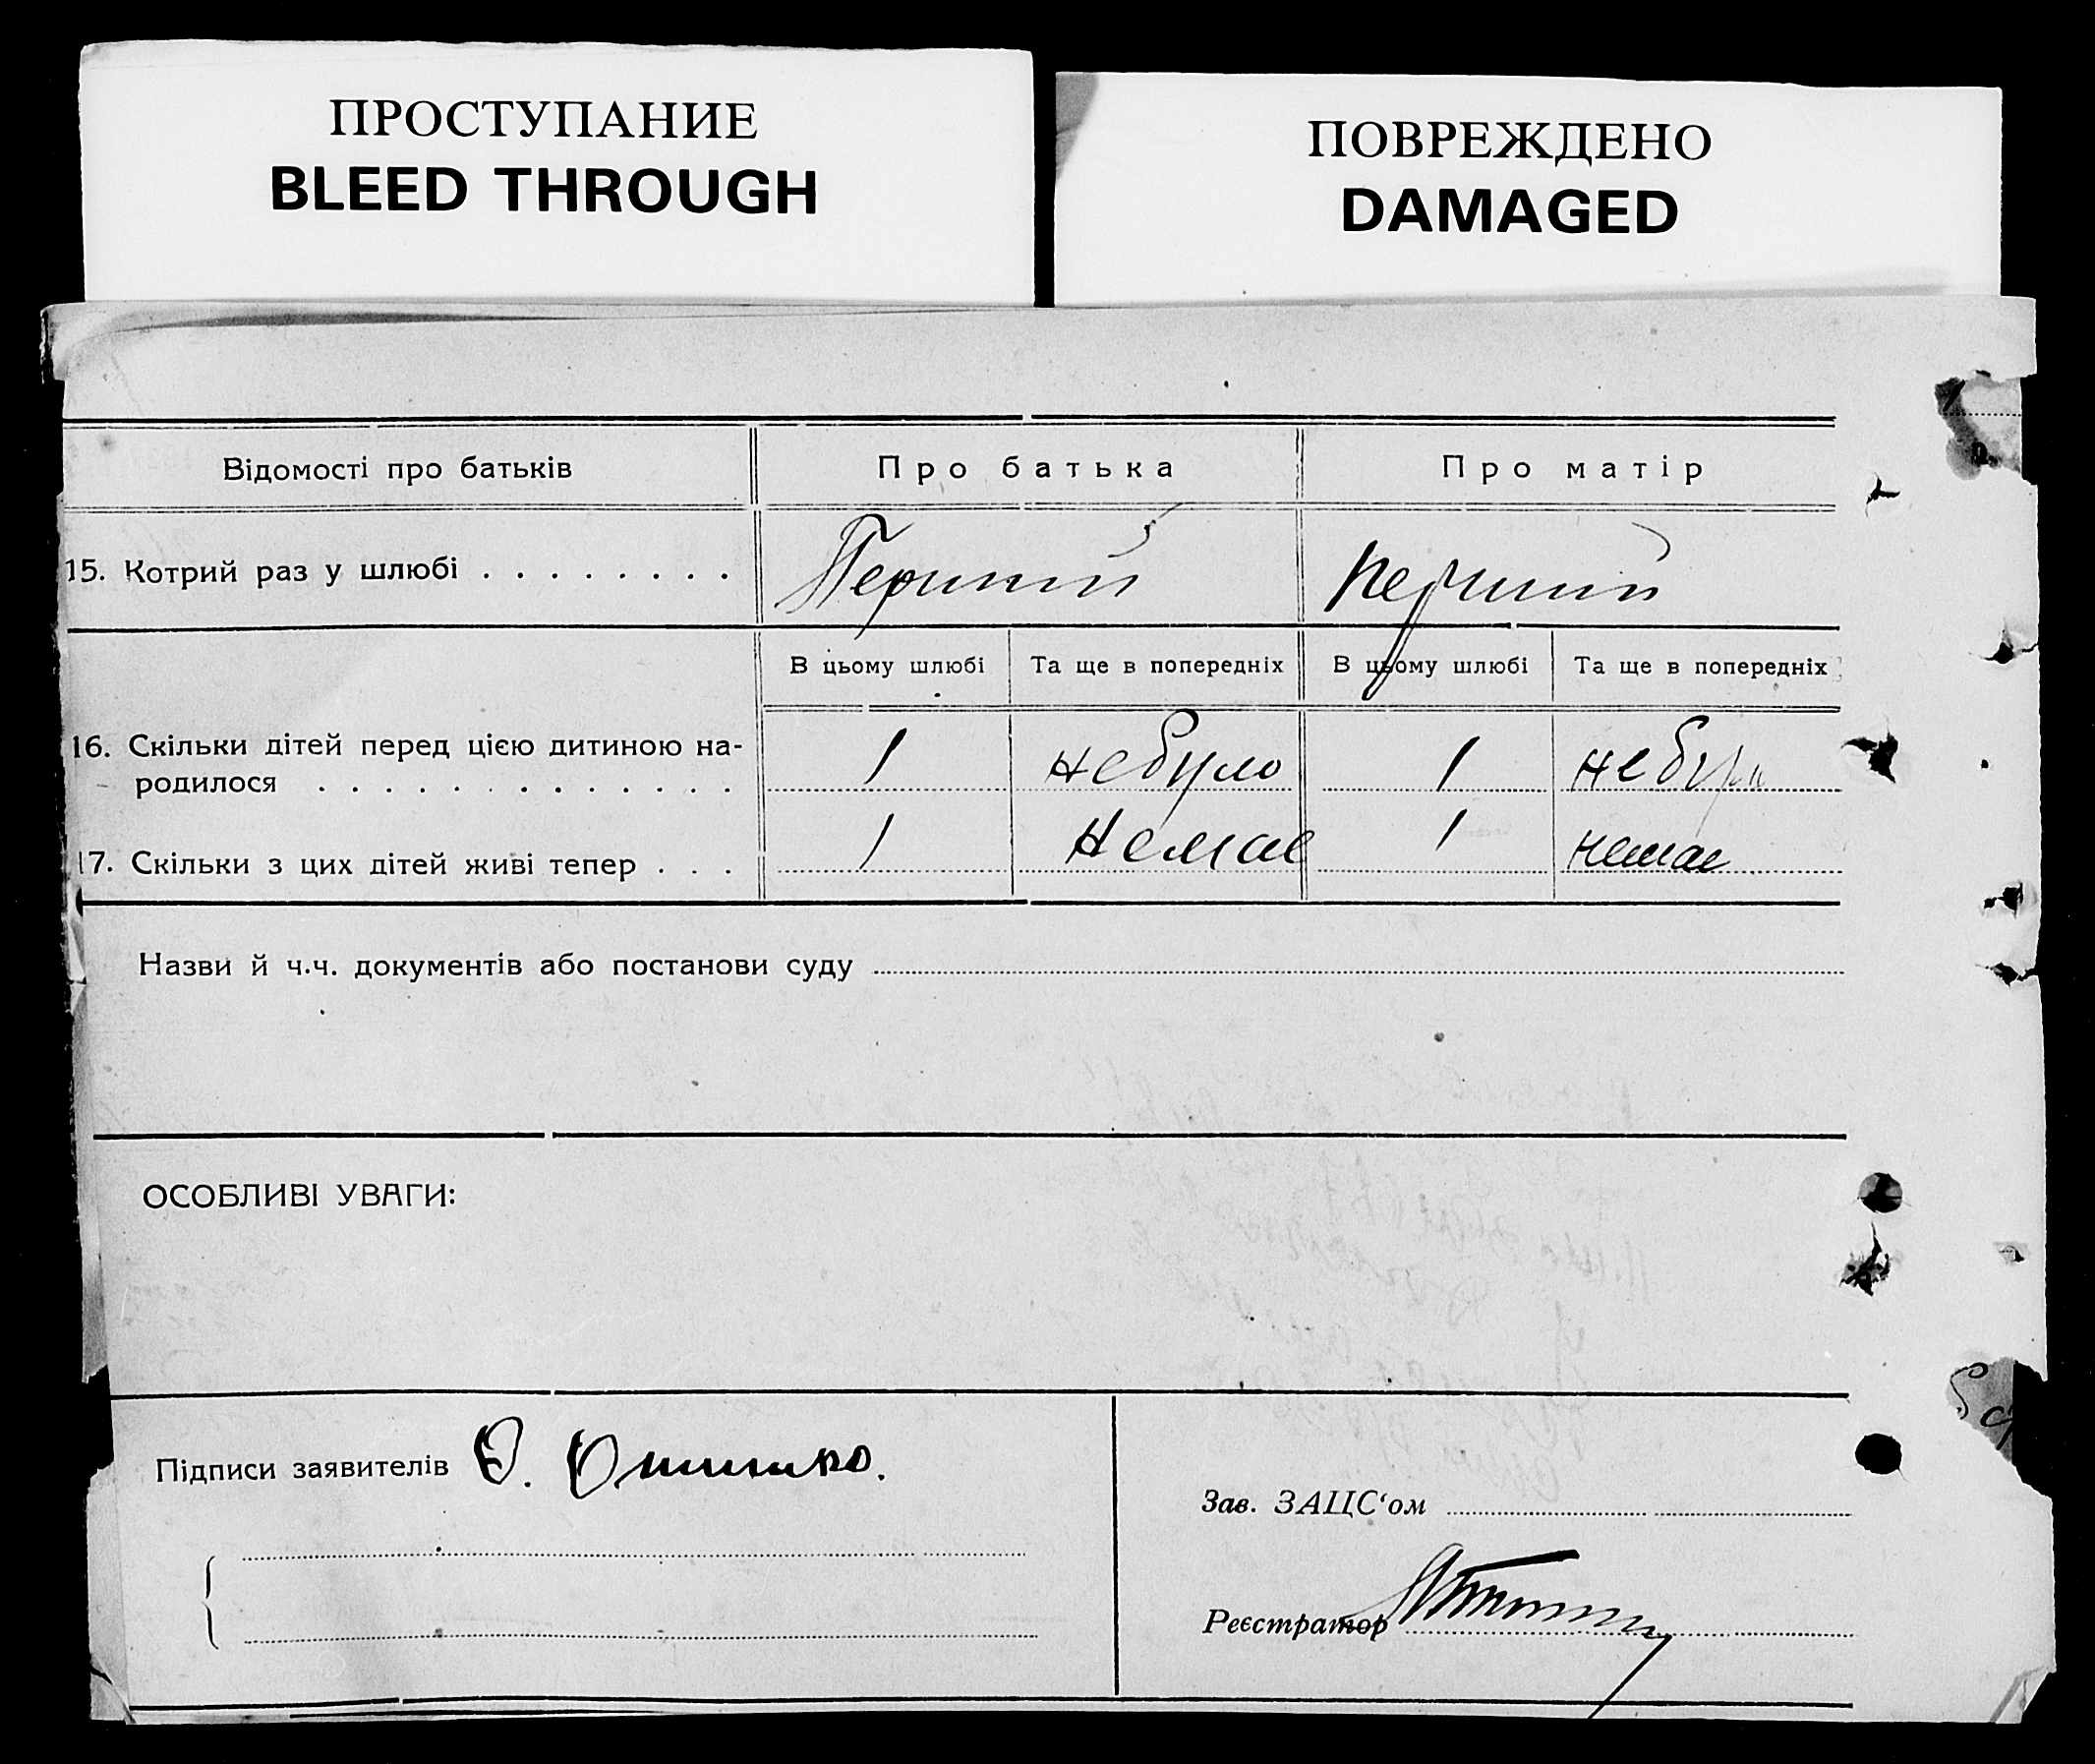 ПРОСТУПАНИЕ
BLEED THROUGH
ПОВРЕЖДЕНО
DAMAGED
Відомості про батьків
Про батька
Про матір
15. Котрий раз у шлюбі . . . . . . . .
Перший
перший
В цьому шлюбі
Та ще в попередніх
В цьому шлюбі
Та ще в попередніх
16. Скільки дітей перед цією дитиною на-
родилося . . . . . . . . . . . . .
1
небуло
1
небуло
17. Скільки з цих дітей живі тепер . . .
1
Немає
1
немає
Назви й ч.ч. документів або постанови суду
ОСОБЛИВІ УВАГИ:
Підписи заявителів
Зав. ЗАЦС‘ом
Реєстратор